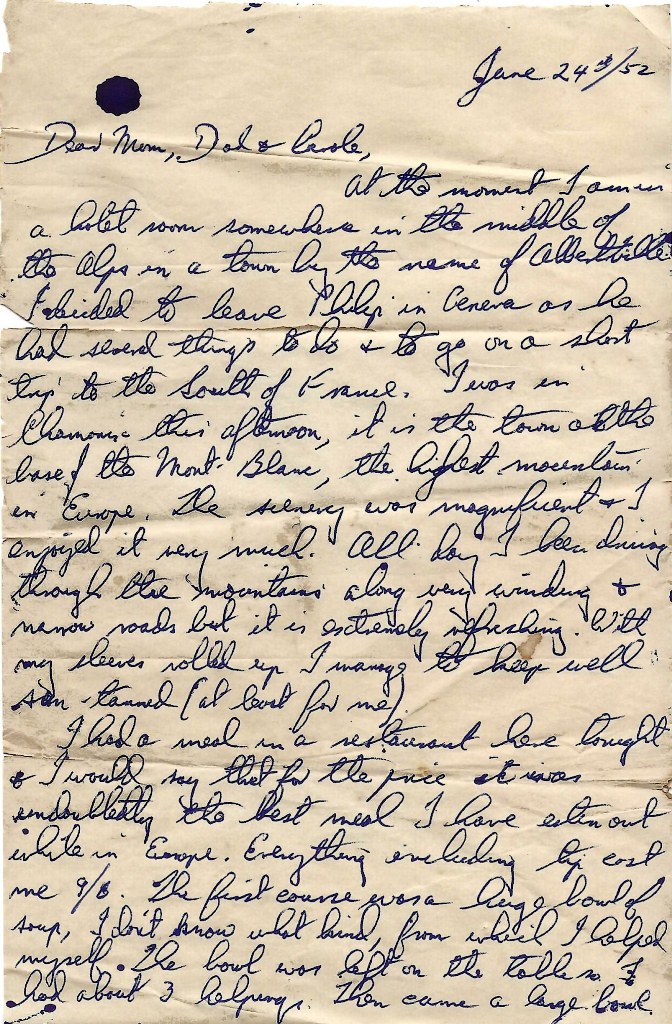 June 24th/52
Dear Mom, Dad & Carole,
At the moment I am in
a hotel room somewhere in the middle of
the Alps in a town by the name of Albertville.
I decided to leave Philip in Geneva as he
had several things to do & to go on a short
trip to the South of France. I was in
Chamonix this afternoon, it is the town at the
base of the Mont-Blanc, the highest mountain
in Europe. The scenery was magnificent & I
enjoyed it very much. All day I been driving
through the mountains along very winding &
narrow roads but it is extremely refreshing. With
my sleeves rolled up I manage to keep well
sun tanned (at least for me).
I had a meal in a restaurant here tonight
& I would say that for the price it was
undoubtedly the best meal I have eaten out
while in Europe. Everything including tip cost
me 9/6. The first course was a huge bowl of
soup, I don't know what kind, from which I helped
myself. The bowl was left on the table so I
had about 3 helpings. Then came a large bowl